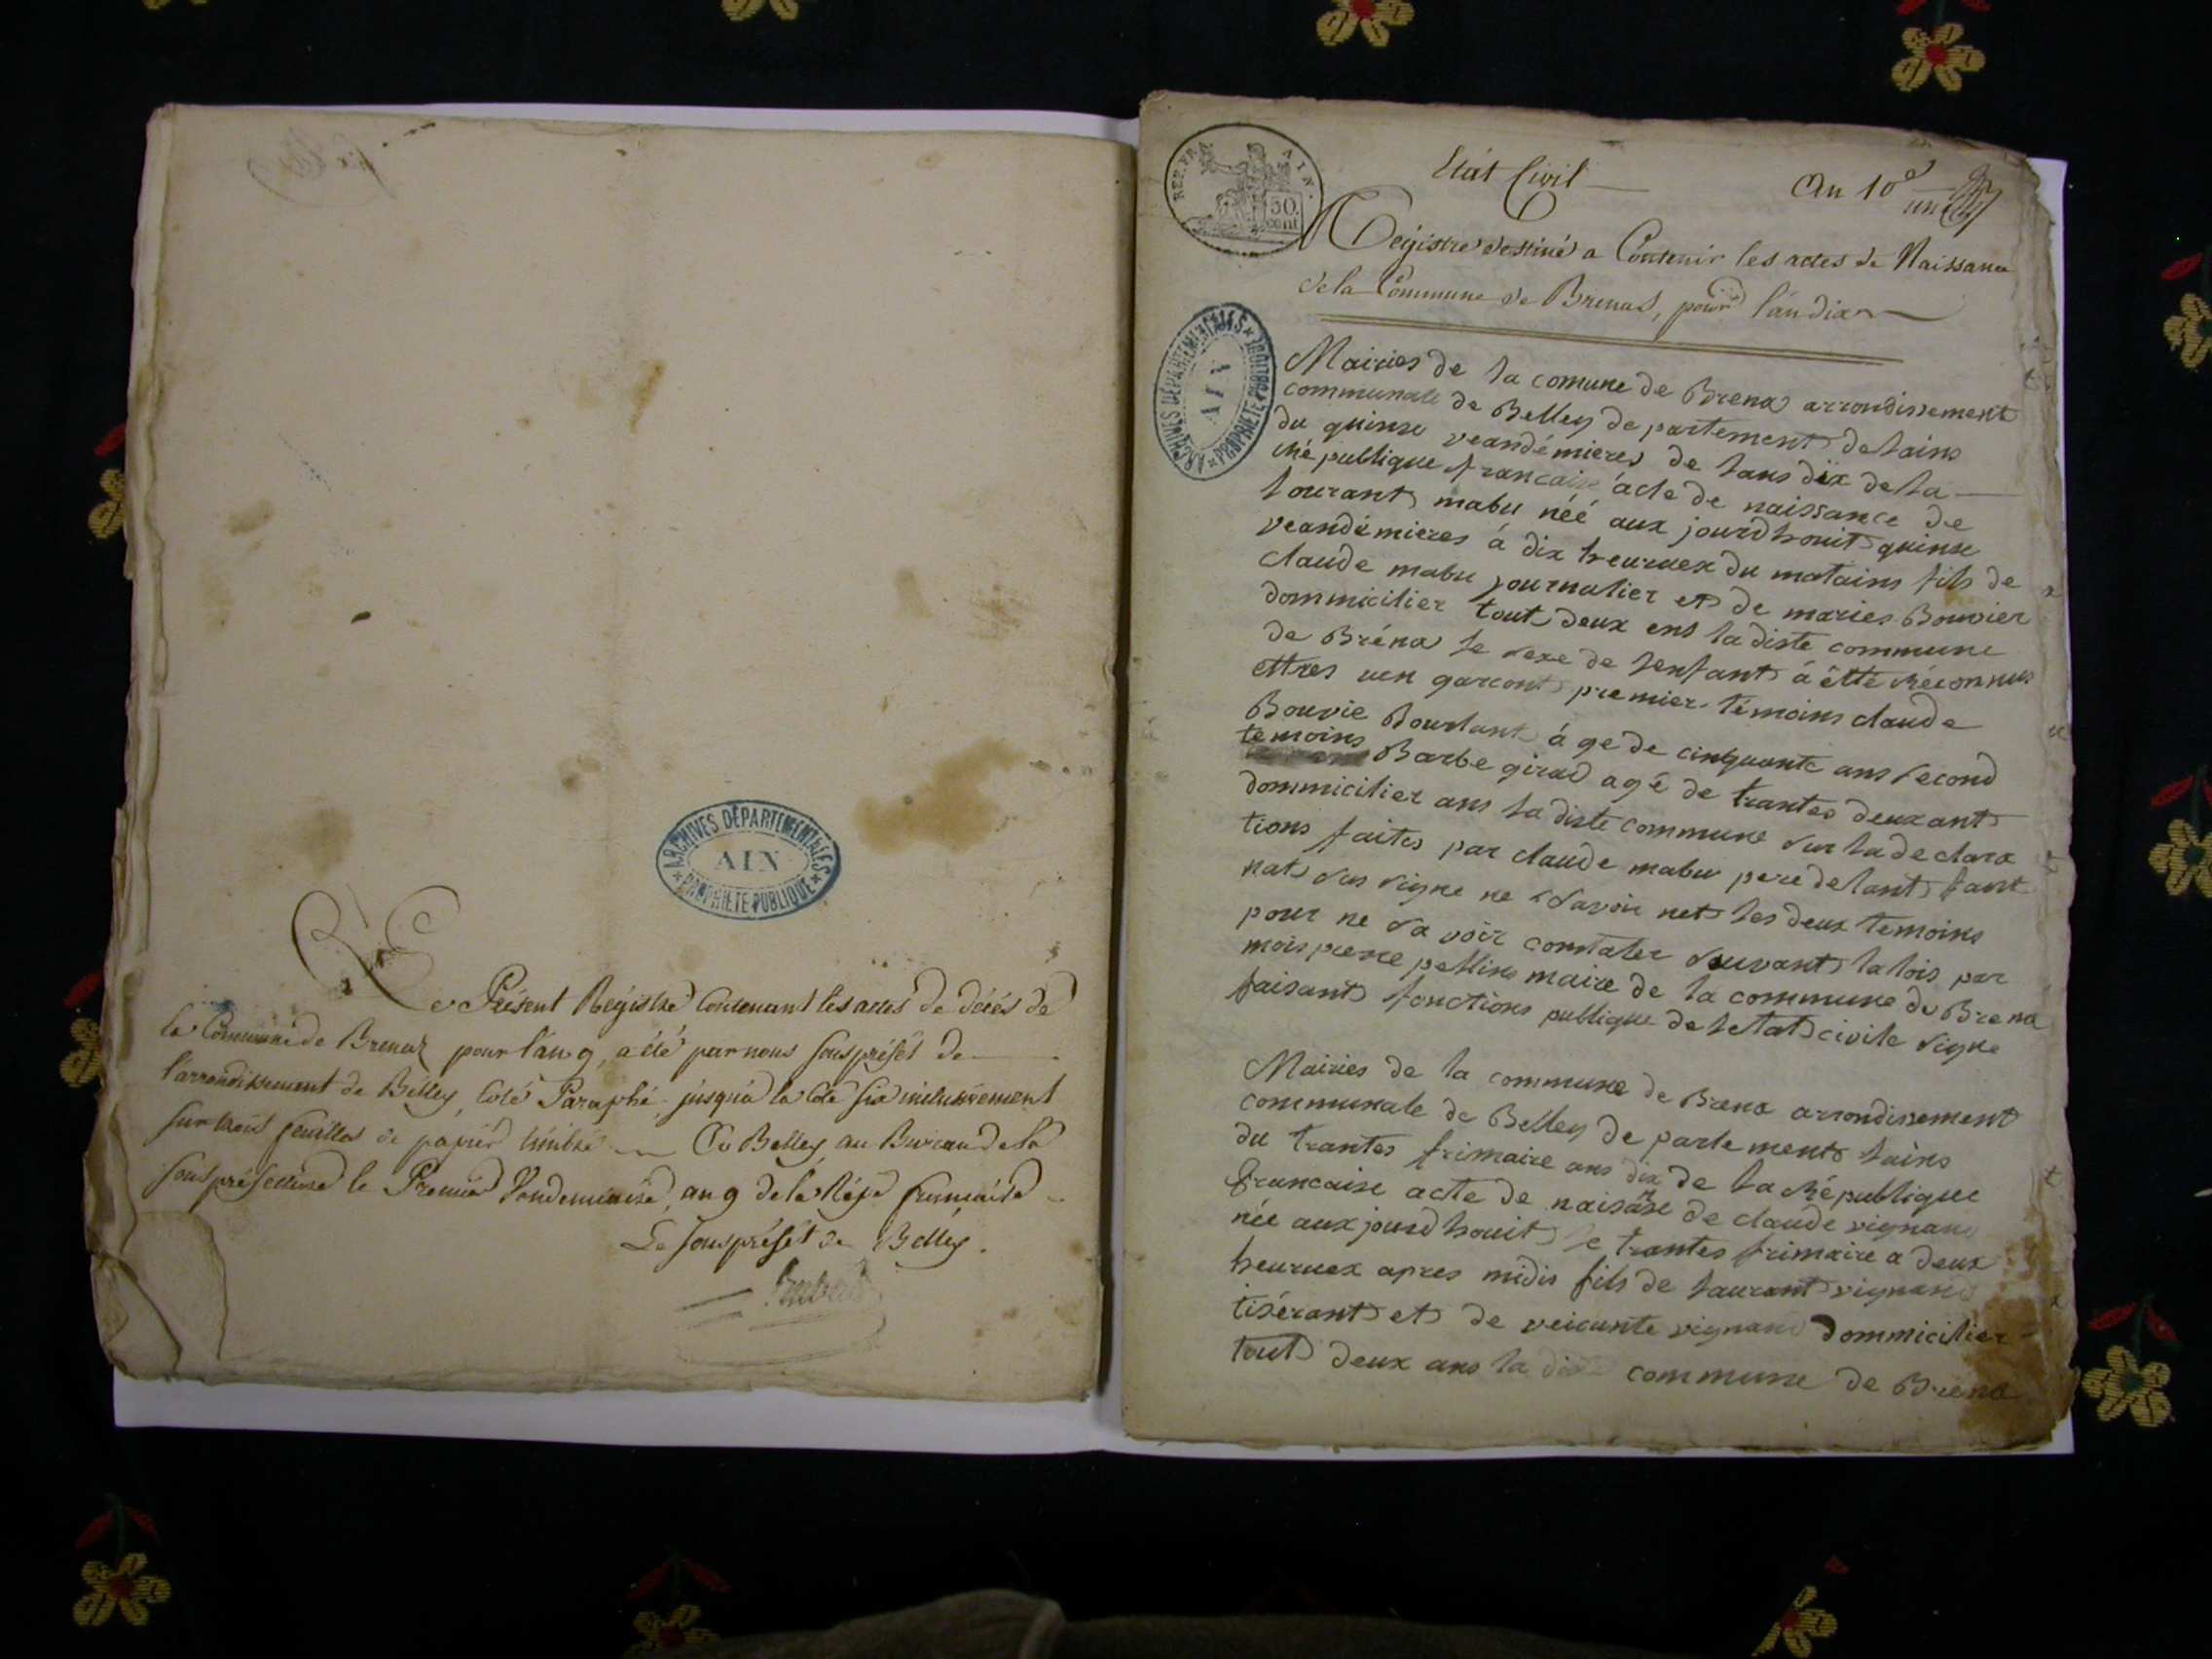 ARCHIVES DÉPARTEMENTALES
AIN
PROPRIÉTÉ PUBLIQUE
Le Présent Registre Contenant les actes de décés de
la Commune de Brenaz pour l'an 9, a été par nous Souspréfet de
l'arrondissement de Belley, Coté Paraphé, jusqu'à la Cote six inclusivement
sur trois feuilles de papier timbré — A Belley, au Bureau de la
Souspréfecture le Premier Vendemiaire, an 9 de la Rép.e francaise
Le Souspréfet de Belley.
REP. FRA AIN.
50. cent
Etát Civil — An 10e
un
Régistre destiné a Contenir les actes de Naissance
de la Commune de Brenas, pour l'an dix
ARCHIVES DÉPARTEMENTALES
AIN
PROPRIÉTÉ PUBLIQUE
Mairies de la comune de Brena arrondissement
communale de Belley de partement de lains
du quinse veandémieres de lans dix de la
république francaise acte de naissance de
lourant mabu néé aux jourdhouit quinse
veandémieres á dix heuruex du matains fils de
claude mabu journalier et de maries Bouvier
dommicilier tout deux ens la diste commune
de Bréna le sexe de lenfant á étté réconnus
ettres uen garcont premier témoins claude
Bouvie Bourlant á ge de cinquante ans second
temoins Barbe girad agé de trantes deux ant
dommicilier ans la diste commune sur la declara
tions faites par claude mabu pere de lant fant
nat sus signe ne savoir net les deux temoins
pour ne sa voir constater suvant la lois par
mois pierre pettins maire de la commune de Brena
faisant fonctions publique de letat civile signe
Mairies de la commune de Brena arrondissement
communale de Belley de parte ment lains
du trantes frimaire ans dix de la république
francaise acte de naisanse de claude vignand
née aux jourdhouit le trantes frimaire a deux
heuruex apres midis fils de laurant vignand
tisérant et de veicunte vignand dommicilier
tout deux ans la diste commune de Brena